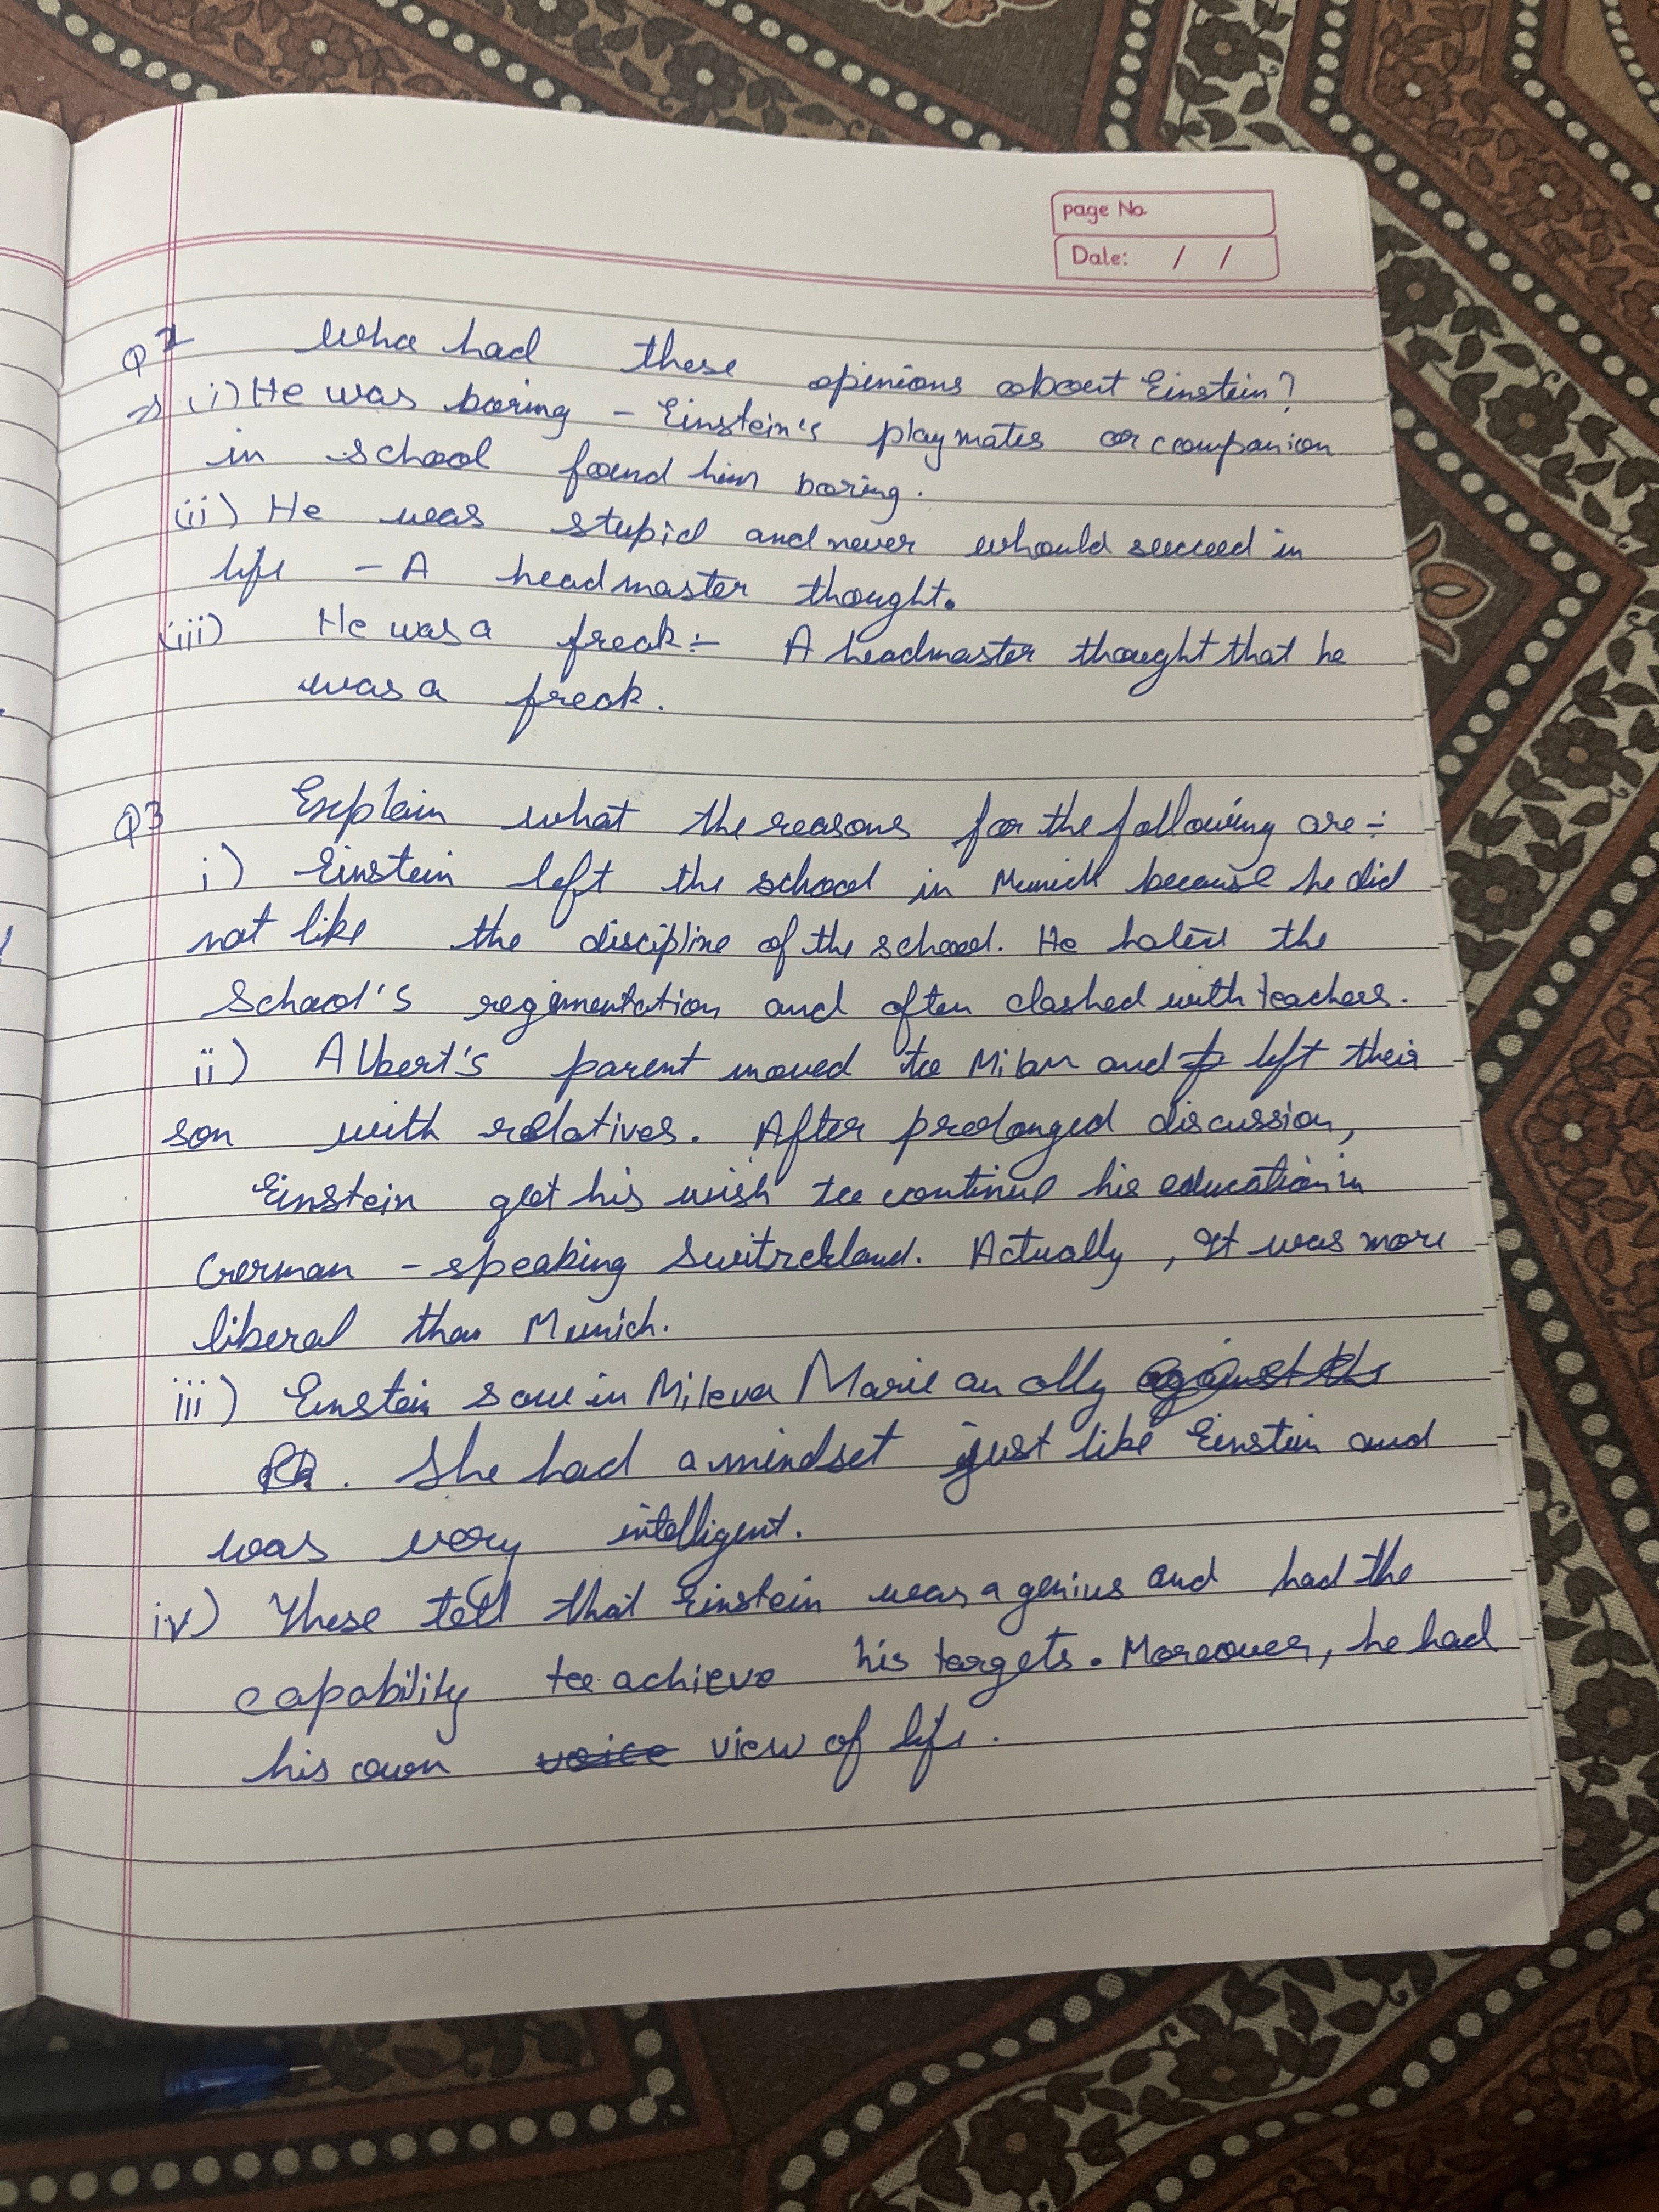 page No.
Date: / /
Q2 Who had these opinions about Einstein?
→ (i) He was boring - Einstein's playmates or companion
in school found him boring.
(ii) He was stupid and never whould succeed in
life - A headmaster thought.
(iii) He was a freak:- A headmaster thought that he
was a freak.
Q3 Explain what the reasons for the following are:-
i) Einstein left the school in Munich because he did
not like the discipline of the school. He hated the
School's regimentation and often clashed with teachers.
ii) Albert's parent moved to Milan and left their
son with relatives. After prolonged discussion,
Einstein got his wish to continue his education in
German - speaking Switzerland. Actually, It was more
liberal than Munich.
iii) Einstein saw in Mileva Marie an ally against the
. She had a mindset just like Einstein and
was very intelligent.
iv) These tell that Einstein was a genius and had the
capability to achieve his targets. Moreover, he had
his own voice view of life.